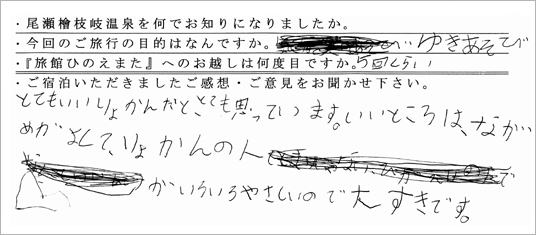 ・尾瀬檜枝岐温泉を何でお知りになりましたか。
・今回のご旅行の目的はなんですか。 ゆきあそび
・『旅館ひのえまた』へのお越しは何度目ですか。5回くらい
・ご宿泊いただきましたご感想・ご意見をお聞かせ下さい。
とてもいいりょかんだと、とても思っています。いいところは、なが
めがよくして、りょかんの人
がいろいろやさしいので大すきです。